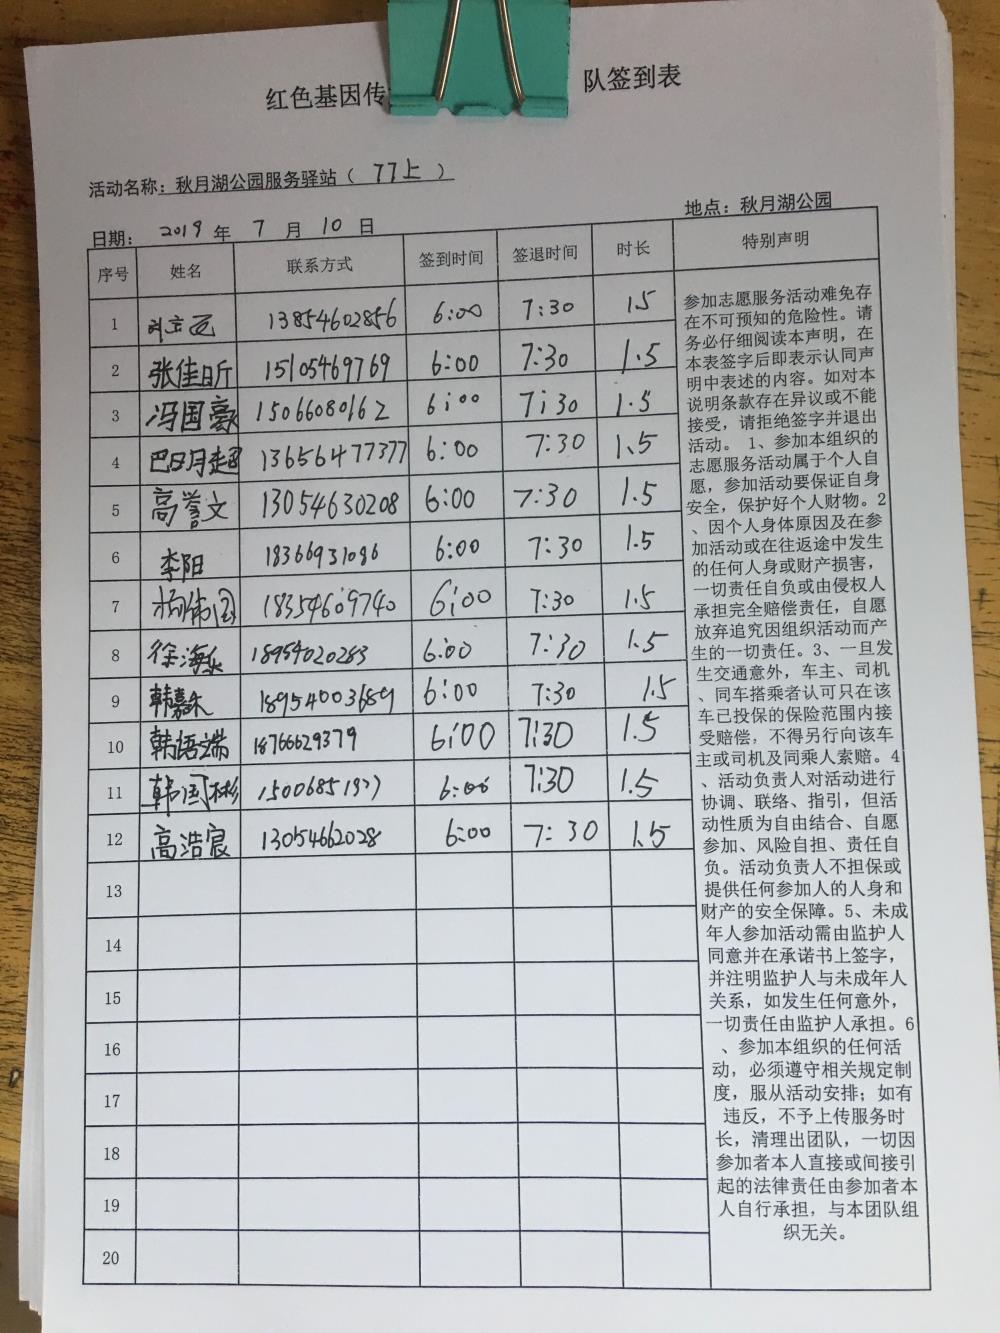 红色基因传 队签到表
活动名称：秋月湖公园服务驿站（ 77上 ）
地点：秋月湖公园
日期： 2019 年 7 月 10 日
序号 姓名 联系方式 签到时间 签退时间 时长 特别声明
1 13854602856 6:00 7:30 1.5
2 张佳昕 15105469769 6:00 7:30 1.5
3 冯国豪 15066080162 6:00 7:30 1.5
4 巴明超 13656477377 6:00 7:30 1.5
5 高誉文 13054630208 6:00 7:30 1.5
6 李阳 18366931086 6:00 7:30 1.5
7 18354609740 6:00 7:30 1.5
8 徐海 18954020283 6:00 7:30 1.5
9 韩嘉禾 18954003689 6:00 7:30 1.5
10 韩语端 18766629379 6:00 7:30 1.5
11 韩国彬 6:00 7:30 1.5
12 高浩宸 13054662028 6:00 7:30 1.5
13
14
15
16
17
18
19
20
参加志愿服务活动难免存
在不可预知的危险性。请
务必仔细阅读本声明，在
本表签字后即表示认同声
明中表述的内容。如对本
说明条款存在异议或不能
接受，请拒绝签字并退出
活动。 1、参加本组织的
志愿服务活动属于个人自
愿，参加活动要保证自身
安全，保护好个人财物。2
、因个人身体原因及在参
加活动或在往返途中发生
的任何人身或财产损害，
一切责任自负或由侵权人
承担完全赔偿责任，自愿
放弃追究因组织活动而产
生的一切责任。3、一旦发
生交通意外，车主、司机
、同车搭乘者认可只在该
车已投保的保险范围内接
受赔偿，不得另行向该车
主或司机及同乘人索赔。4
、活动负责人对活动进行
协调、联络、指引，但活
动性质为自由结合、自愿
参加、风险自担、责任自
负。活动负责人不担保或
提供任何参加人的人身和
财产的安全保障。5、未成
年人参加活动需由监护人
同意并在承诺书上签字，
并注明监护人与未成年人
关系，如发生任何意外，
一切责任由监护人承担。6
、参加本组织的任何活
动，必须遵守相关规定制
度，服从活动安排；如有
违反，不予上传服务时
长，清理出团队，一切因
参加者本人直接或间接引
起的法律责任由参加者本
人自行承担，与本团队组
织无关。